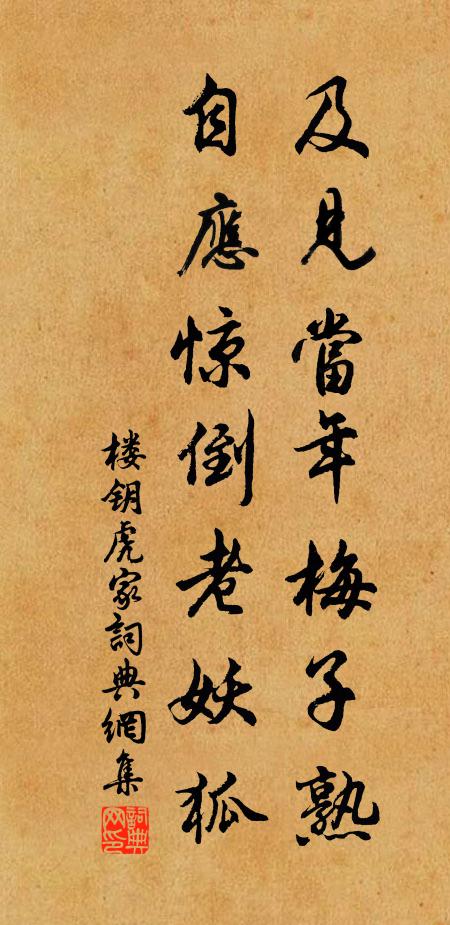 及見當年梅子熟
自應惊倒老妖狐
楼钥虎家詞典網集
詞典网印